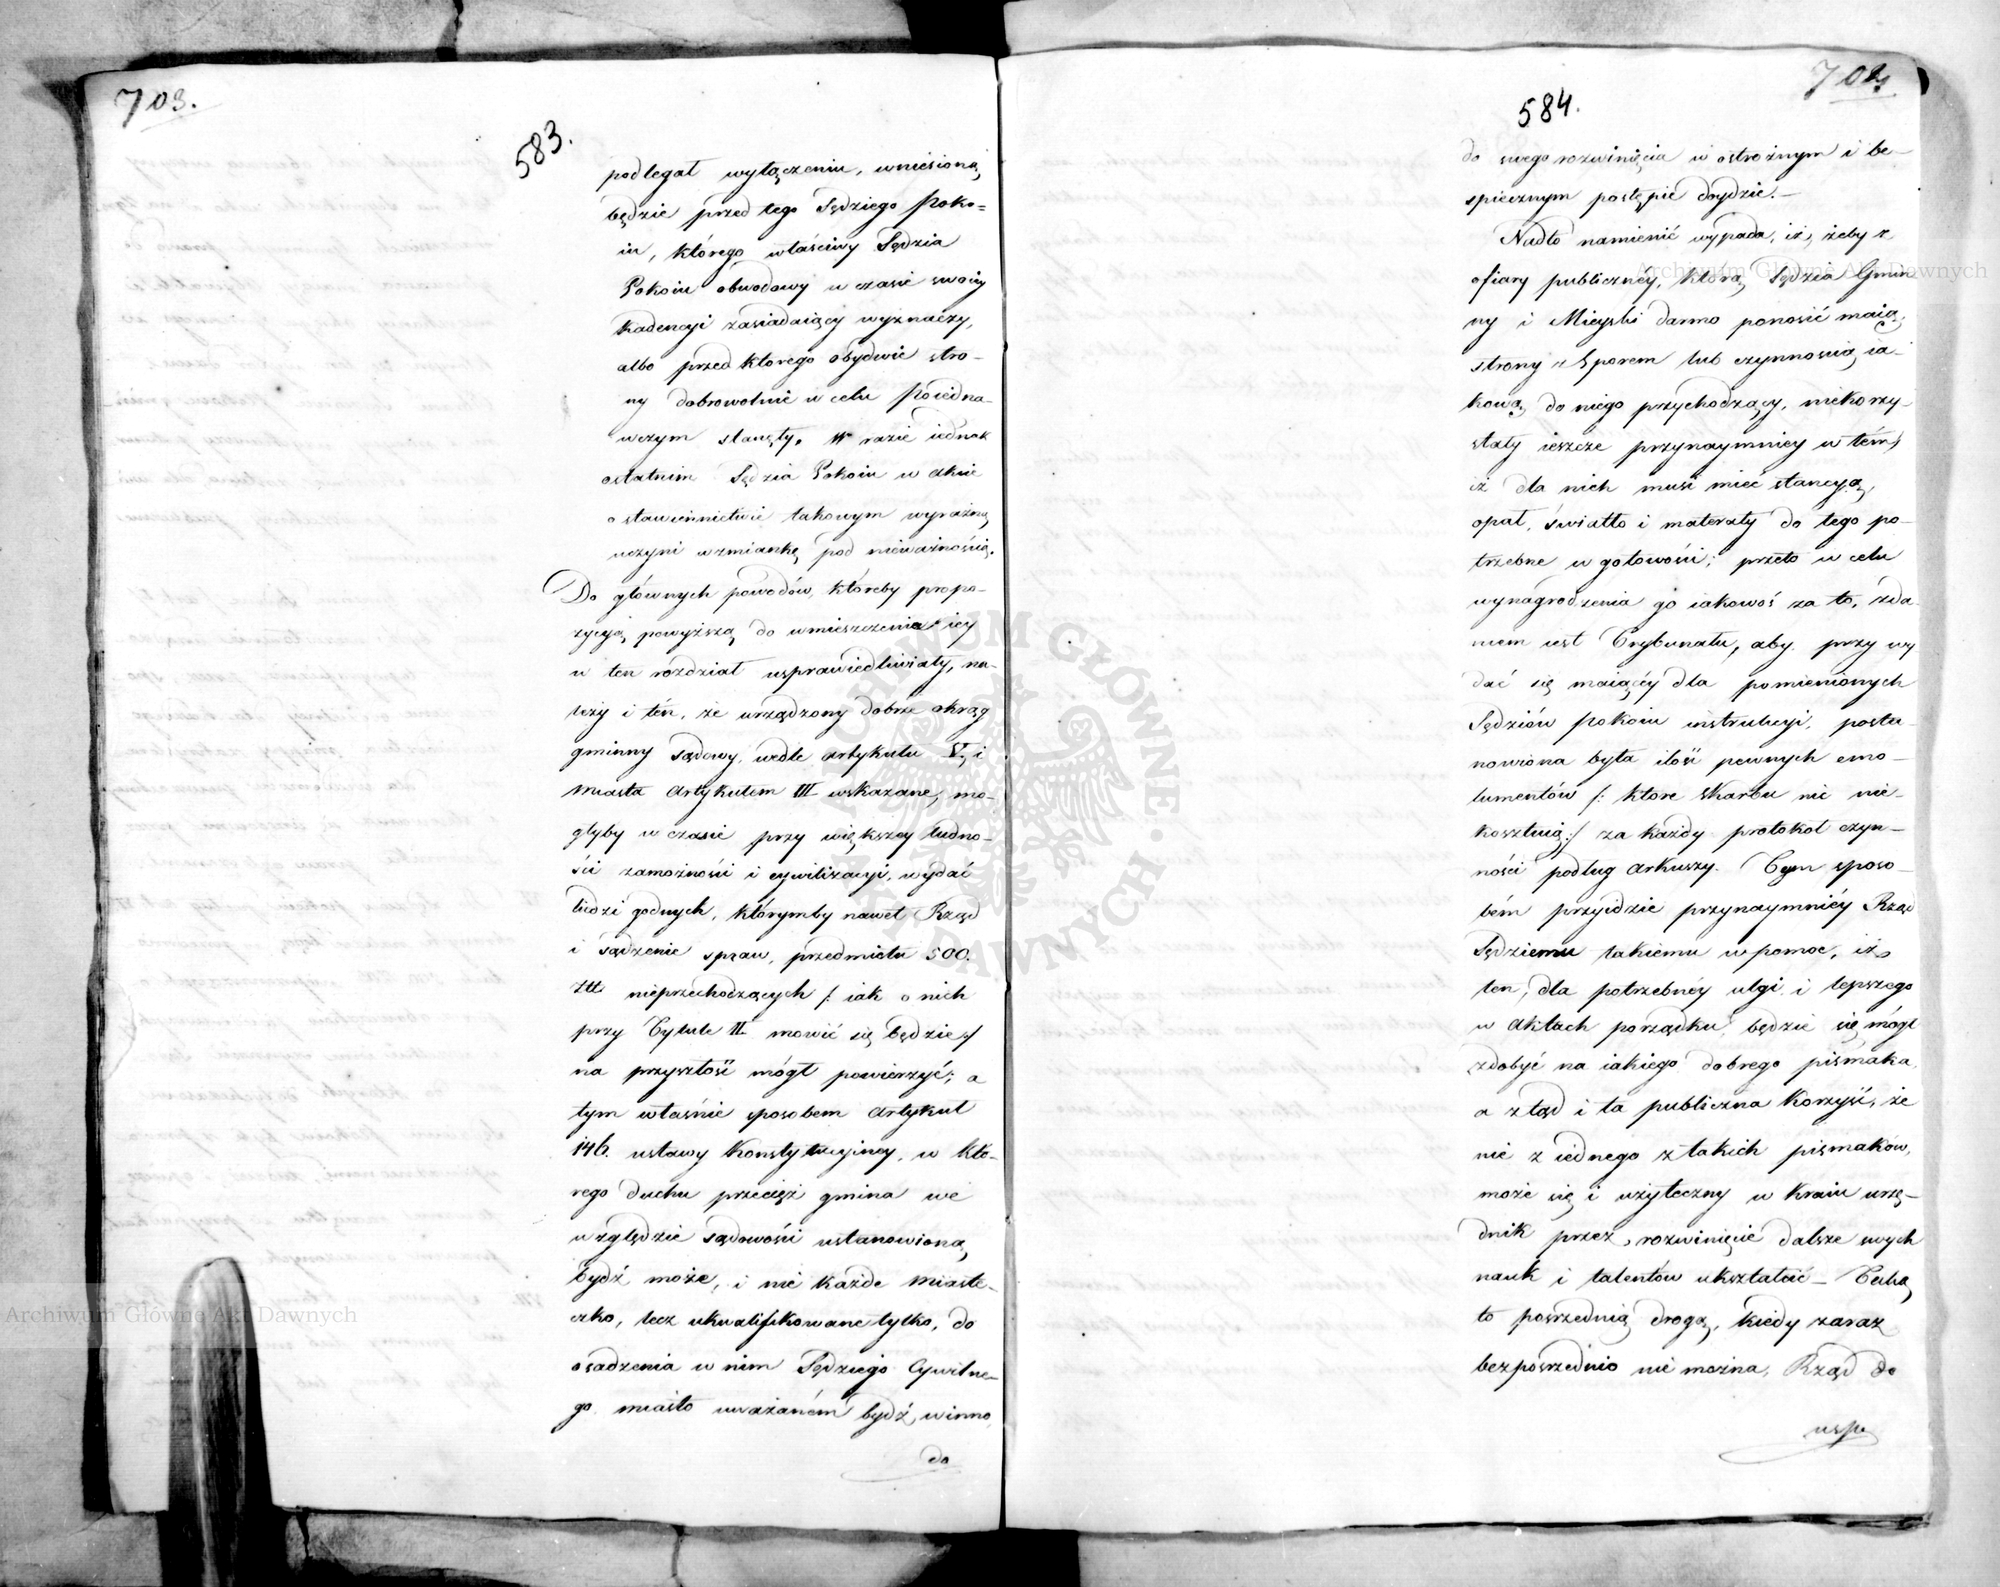 703.
583.
podlegał wyłączeniu, wniesioną
będzie przed tego Sędziego Poko=
iu, którego właściwy Sędzia
Pokoiu obwodowy w czasie swoiey
Kadencyi zasiadaiący wyznaczy,
albo przed ktorego obydwie stro-
ny dobrowolnie w celu Poiedna-
wczym stanęły. W razie iednak
ostatnim Sędzia Pokoiu w akcie
o stawiennictwie takowym wyraźną
uczyni wzmiankę pod nieważnością.
Do głównych powodów, któreby propo-
zycyią powyższą do umieszczenia iey
w ten rozdział usprawiedliwiały, na-
leży i ten, że urządzony dobrze okrąg
gminny sądowy, wedle artykułu V. i
Miasta Artykułem III wskazane, mo-
głyby w czasie przy większey ludno-
ści zamożności i cywilizacyi, wydać
ludzi godnych, którymby nawet Rząd
i sądzenie spraw, przedmiotu 500.
Złł nieprzechodzących /: iak o nich
przy Tytule II mowić się będzie :/
na przyszłość mógł powierzyć; a
tym właśnie sposobem Artykuł
146. ustawy Konstytucyiney, w któ-
rego duchu przecięż gmina we
względzie sądowości ustanowioną
bydź może, i nie każde Miaste-
czko, lecz ukwalifikowane tylko, do
osadzenia w nim Sędziego Cywilne-
go miasto uważaném bydź winno,
do
704
584.
do swego rozwinięcia w ostrożnym i be-
spiecznym postępie doydzie.-
Nadto namienić wypada, iż, żeby z
ofiary publiczney, którą Sędzia Gmin
ny i Mieyski darmo ponosić maią,
strony z Sporem lub czynnością ia-
kową do niego przychodzący, niekorzy-
stały ieszcze przynaymniey w tém,
iż dla nich musi mieć stancyą,
opał, światło i materyały do tego po-
trzebne w gotowości; przeto w celu
wynagrodzenia go iakowoś za to, zda-
niem iest Trybunału, aby przy wy
dać się maiącéy dla pomienionych
Sędziów Pokoiu instrukcyi, posta-
nowiona była ilość pewnych emo-
lumentów /: które Skarbu nic nie-
kosztuią :/ za każdy protokoł czyn-
ności podług arkuszy. Tym sposo-
bém przyidzie przynaymniéy Rząd
Sędziemu takiemu w pomoc, iż
ten, dla potrzebnéy ulgi i lepszego
w aktach porządku, będzie się mógł
zdobyć na iakiego dobrego pismaka,
a ztąd i ta publiczna Korzyść, że
nie z iednego z takich pismaków,
może się i użyteczny w Kraiu urzę-
dnik przez rozwinięcie dalsze swych
nauk i talentów ukształcić – Taką
to pośrzednią drogą, kiedy zaraz
bezpośrzednio nie można, Rząd do
uspo
Archiwum Główne Akt Dawnych
Archiwum Główne Akt Dawnych
ARCHIWUM GŁÓWNE AKT DAWNYCH